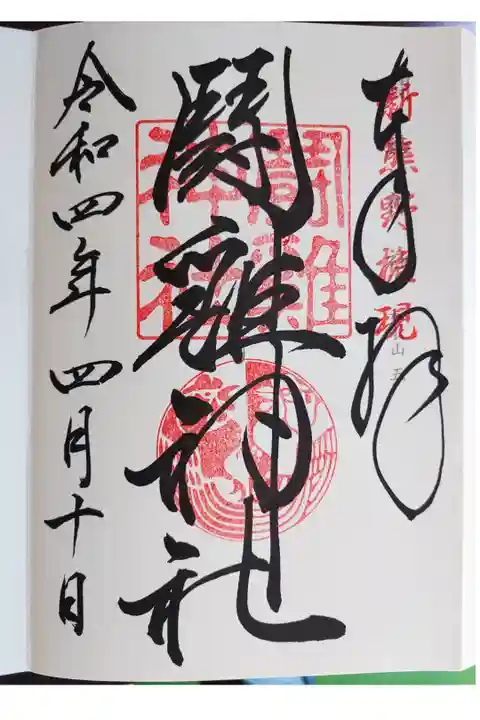 奉拝
新熊野権現
闘雞神社
闘雞神社
令和四年四月十日